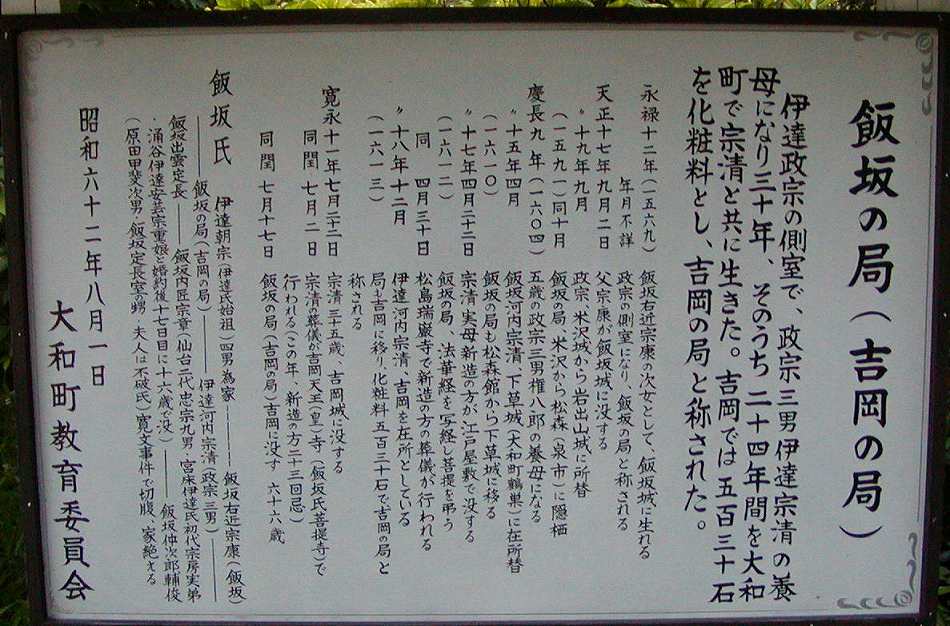 飯坂の局（吉岡の局）
伊達政宗の側室で、政宗三男伊達宗清の養
母になり三十年、そのうち二十四年間を大和
町で宗清と共に生きた。吉岡では五百三十石
を化粧料とし、吉岡の局と称された。
永禄十二年（一五六九）　飯坂右近宗康の次女として、飯坂城に生れる
年月不詳　政宗の側室になり、飯坂の局と称される
天正十七年九月二日　父宗康が飯坂城に没する
〃十九年九月　政宗、米沢城から岩出山城に所替
（一五九一）同十月　飯坂の局、米沢から松森（泉市）に隠栖
慶長九年（一六〇四）　五歳の政宗三男権八郎の養母になる
〃十五年四月　飯坂河内宗清、下草城（大和町鶴巣）に在所替
（一六一〇）　飯坂の局も松森館から下草城に移る
〃十七年四月二十二日　宗清実母新造の方が江戸屋敷で没する
（一六一二）　飯坂の局、法華経を写経し菩提を弔う
同　四月三十日　松島瑞巌寺で新造の方の葬儀が行われる
〃十八年十二月　伊達河内宗清、吉岡を在所としている
（一六一三）　局も吉岡に移り、化粧料五百三十石で吉岡の局と
称される
寛永十一年七月二十二日　宗清三十五歳、吉岡城に没する
同閏七月二日　宗清の葬儀が吉岡天王（皇）寺（飯坂氏菩提寺）で
行われる（この年、新造の方二十三回忌）
同閏七月十七日　飯坂の局（吉岡の局）吉岡に没す　六十六歳
飯坂氏　伊達朝宗（伊達氏始祖）四男為家――飯坂右近宗康（飯坂）
――飯坂の局（吉岡の局）――伊達河内宗清（政宗三男）――
飯坂出雲定長――飯坂内匠宗章（仙台二代忠宗九男・宮床伊達氏初代宗房実弟
・涌谷伊達安芸宗重娘と婚約後十七日目に十六歳で没）――飯坂仲次郎輔俊
（原田甲斐次男・飯坂定長室の甥・夫人は不破氏）寛文事件で切腹、家絶える
昭和六十二年八月一日
大和町教育委員会